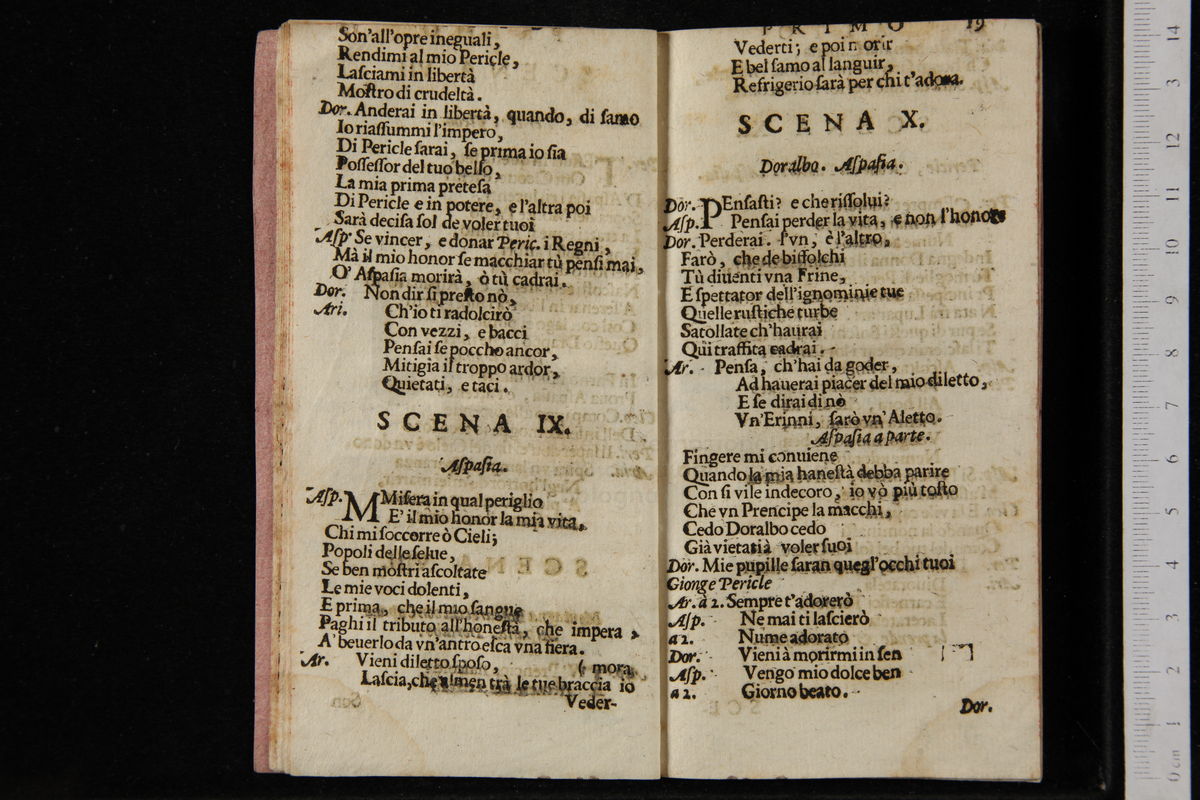 Son'all'opre ineguali,
Rendimi al mio Pericle,
Lasciami in libertà
Mostro di crudeltà.
Dor. Anderai in libertà, quando, di samo
Io riassummi l'impero,
Di Pericle sarai, se prima io sia
Possessor del tuo bello,
La mia prima pretesa
Di Pericle e in potere, e l'altra poi
Sarà decisa sol de voler tuoi
Asp. Se vincer, e donar Peric. i Regni,
Mà il mio honor se macchiar tù pensi mai,
O' Aspasia morirà, ò tù cadrai.
Dor. Non dir si presto nò,
Ari. Ch'io ti radolcirò
Con vezzi, e bacci
Pensai se poccho ancor,
Mitigia il troppo ardor,
Quietati, e taci.
SCENA IX.
Aspasia.
Asp. MMisera in qual periglio
E' il mio honor la mia vita,
Chi mi soccorre ò Cieli;
Popoli delle selue,
Se ben mostri ascoltate
Le mie voci dolenti,
E prima, che il mio sangue
Paghi il tributo all'honestà, che impera,
A' beuerlo da vn'antro esca vna fiera.
Ar. Vieni diletto sposo, ( mora
Lascia, che almen trà le tue braccia io
Veder-
PRIMO 19
Vederti; e poi morir
E bel samo al languir,
Refrigerio sarà per chi t'adora.
SCENA X.
Doralbo. Aspasia.
Dor. PEnsasti? e che rissolui?
Asp. Pensai perder la vita, e non l'honore
Dor. Perderai. l'vn, è l'altro,
Farò, che de biffolchi
Tù diuenti vna Frine,
E spettator dell'ignominie tue
Quelle rustiche turbe
Satollate ch'haurai
Qùi traffita cadrai.
Ar. Pensa, ch'hai da goder,
Ad hauerai piacer del mio diletto,
E se dirai di nò
Vn'Erinni, sarò vn'Aletto.
Aspasia a parte.
Fingere mi conuiene
Quando la mia hanestà debba parire
Con si vile indecoro, io vò più tosto
Che vn Prencipe la macchi,
Cedo Doralbo cedo
Già vietatià voler suoi
Dor. Mie pupille saran quegl'occhi tuoi
Gionge Pericle
Ar. à 2. Sempre t'adorerò
Asp. Ne mai ti lascierò
a 2. Nume adorato
Dor. Vieni à morirmi in sen
Asp. Vengo mio dolce ben
a 2. Giorno beato.
Dor.